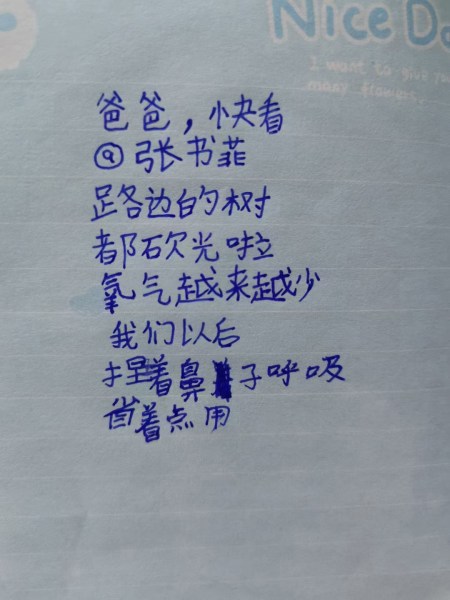 Nice Da
I want to give you
many flowers.
爸爸，快看
@张书菲
路边的树
都砍光啦
氧气越来越少
我们以后
捏着鼻子呼吸
省着点用